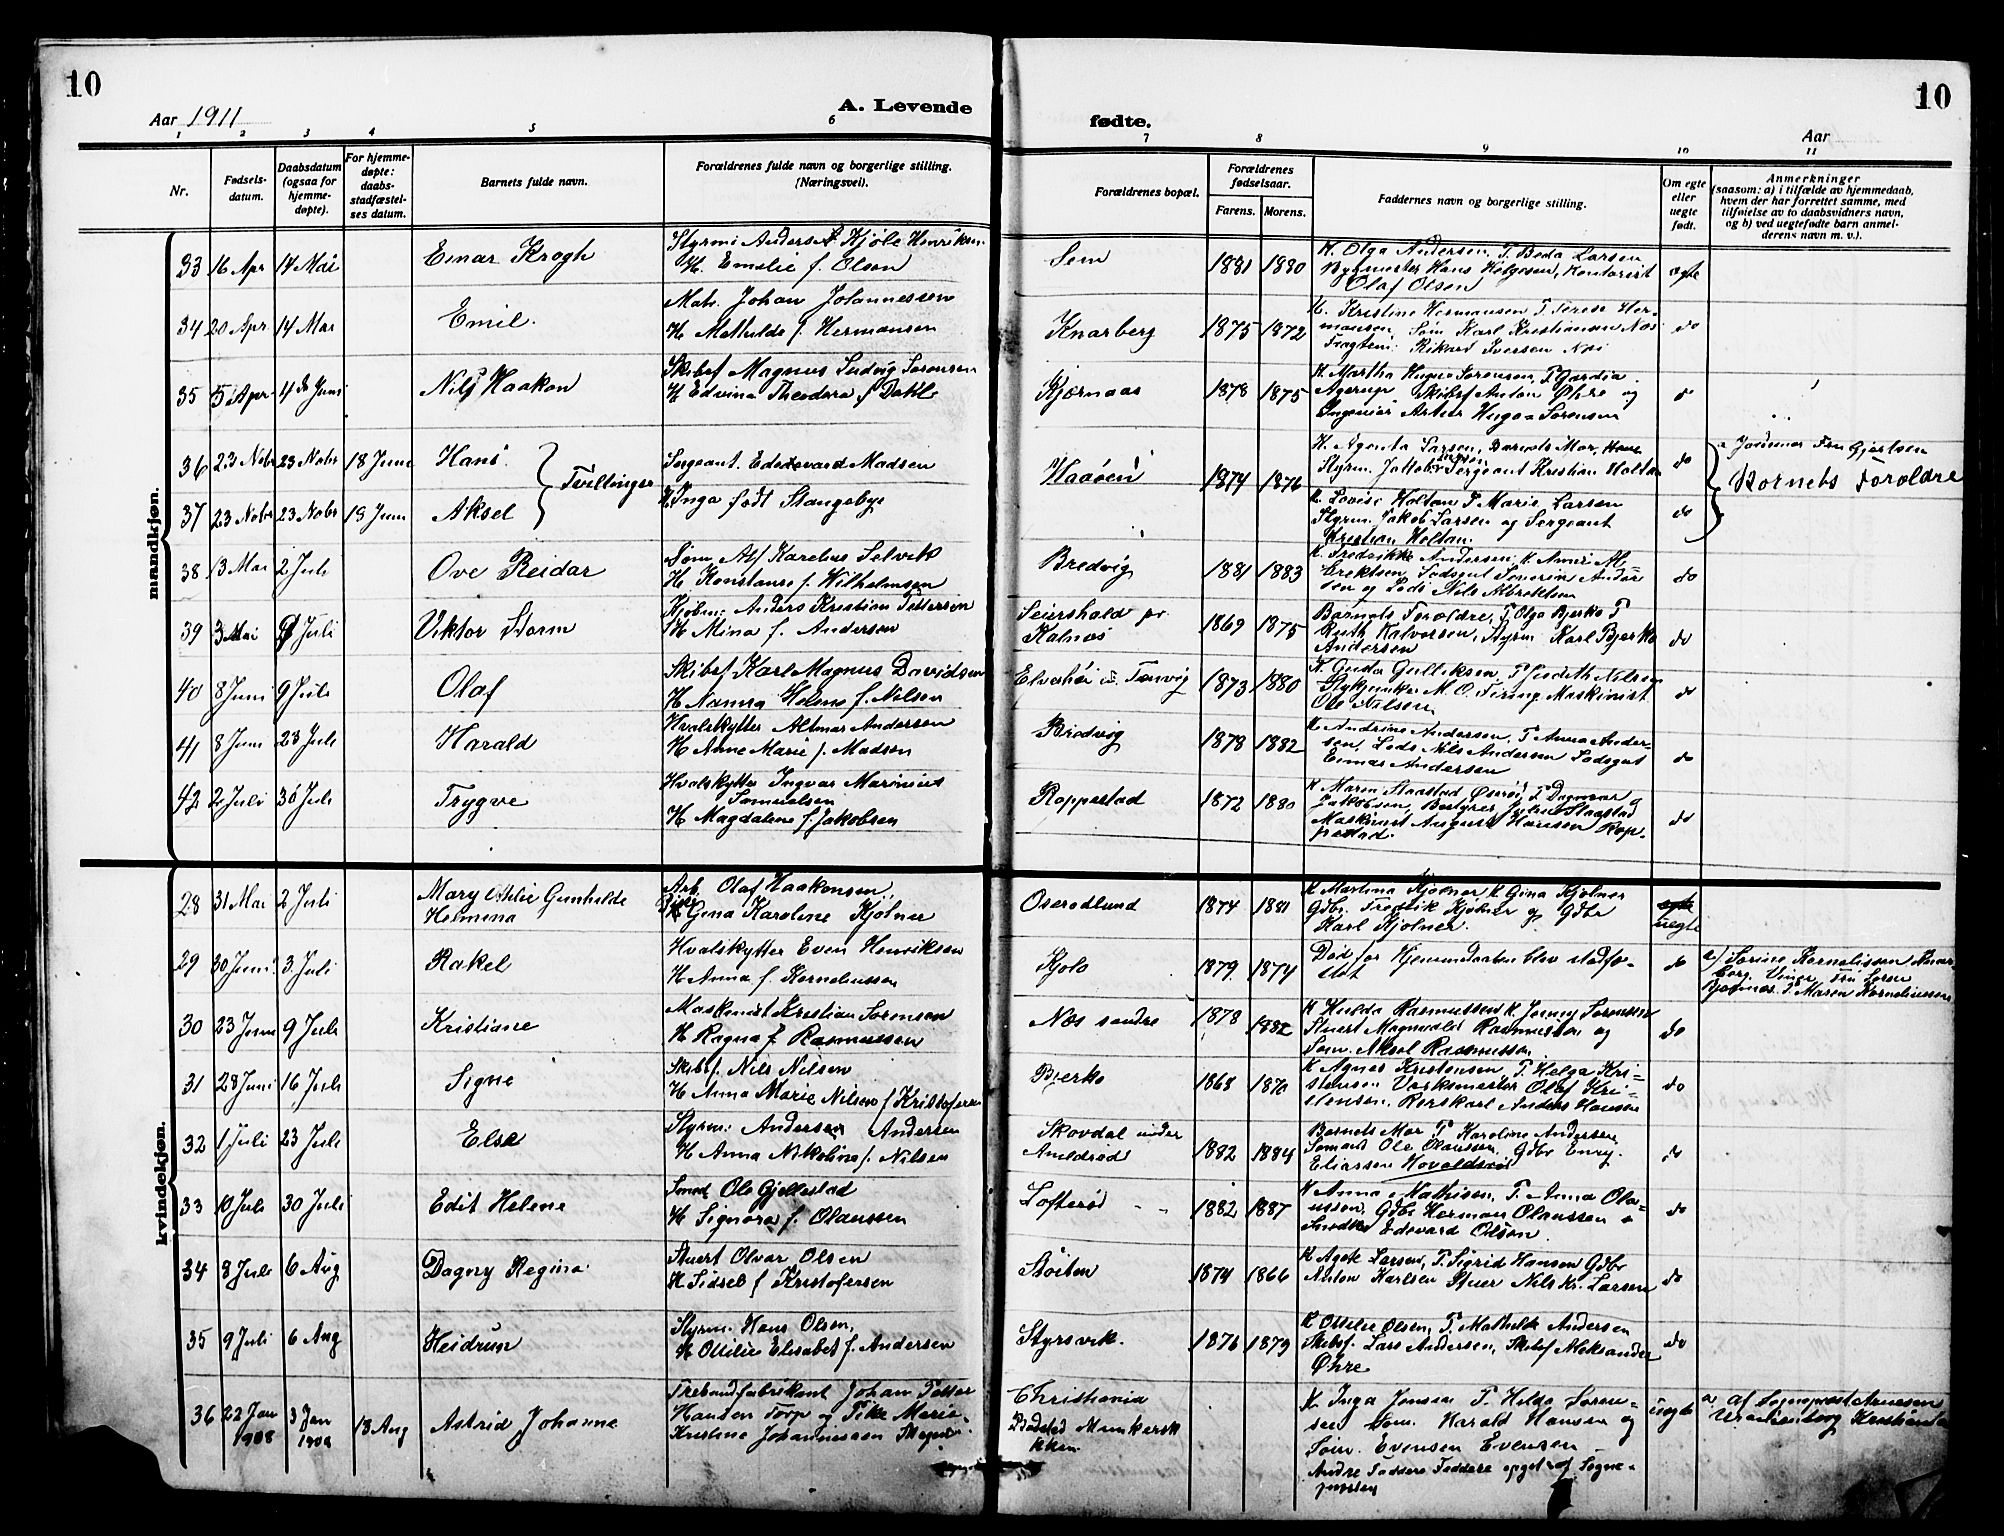 10
10
Aar 1911
A. Levende
fødte.
Aar
1 2 3 4 5 6 7 8 9 10 11
Nr.
Fødsels-
datum.
Daabsdatum
(ogsaa for
hjemme-
døpte).
For hjemme-
døpte:
daabs-
stadfæstel-
ses datum.
Barnets fulde navn.
Forældrenes fulde navn og borgerlige stilling.
(Næringsvei).
Forældrenes bopæl.
Forældrenes
fødselsaar.
Farens. Morens.
Faddernes navn og borgerlige stilling.
Om egte
eller
uegte
født.
Anmerkninger
(saasom: a) i tilfælde av hjemmedaab,
hvem der har forrettet samme, med
tilføielse av to daabsvidners navn,
og b) ved uegtefødte barn anmel-
derens navn m. v.).
mandkjøn.
33 16 Apr 14 Mai Einar Krogh
Styrm Anders Kjøle Henriksen
H. Emelie f. Olsen
Sem 1881 1880
K. Olga Andersen, P. Beda Larsen
Bygmester Hans Helgesen, Kontorist
Olaf Olsen
egte
34 20 Apr 14 Mai Emil.
Matr. Johan Johannessen
H Mathilde f. Hermansen
Knarberg 1875 1872
K. Kristine Hermansen P. Terese Her-
mansen, Søm Karl Kristiansen Næs
Fragtem: Rikard Iversen Næs
do
35 5 Apr 4de Juni Nils Haakon
Skibsf Magnus Ludvig Sørensen
H Edvina Theodora f Dahl
Kjærnaas 1878 1875
K. Martha Hugo Sørensen, P.
Agerup Skibsf Anton Øhre og
Ingeniør Artur Hugo Sørensen
36 23 Nobr 23 Nobr 18 Juni Hans.
Tvillinger
Sergeant. Edevard Madsen
H Inga født Stangebye
Haaøen 1874 1876
K. Agenta Larsen, Barnets Mor,
Styrm. Jakob Sergeant Kristian Holtan
do
Jordmor Fru Gjertsen
Barnets Forældre
37 23 Nobr 23 Nobr 18 Juni Aksel
K Lovise Holtan P Marie Larsen
Styrm. Jakob Larsen og Sergeant
Kristian Holtan.
do
38 13 Mai 2 Juli Ove Reidar
Søm Alf Karelius Selvik
H Konstanse f. Wilhelmsen
Bredvig 1881 1883
K. Fredrikke Andersen, K. Anne
Eriksen, Lodsgut Severin Ander
sen og Lods Nils Abrahamsen
do
39 3 Mai 9 Juli Viktor Storm
Kjøbm: Anders Kristian Pettersen
H Mina f. Andersen
Seiershald pr
Kalnæs 1869 1875
Barnets Forældre, P. Olga Bjerkø P
Ruth Kalvorsen, Styrm Karl Bjerkø
Andersen
do
40 8 Juni 9 Juli Olaf
Skibsf Karl Magnus Davidsen
H Nanna Helene f. Nilsen
Elverhøi u. Torvig 1873 1880
K. Guda Gulliksen, P Judith Nilsen
M. O. Maskinist
Ole Nilsen
do
41 8 Juni 23 Juli Harald
Hvalskytter Altmar Andersen
H Anne Marie f. Madsen
Bredvig 1878 1882
K Andrine Andersen, P Anna Ander-
sen, Lods Nils Andersen Lodsgut
Einar Andersen
do
42 2 Juli 30 Juli Trygve
Hvalskytter Ingvar Marinius
Samuelsen
H Magdalene f. Jakobsen
Roppestad 1872 1880
K Maren Staastad Øserød P Dagmar
Jakobsen, Bestyrer Julius Staastad
Maskinist August Hansen Rop-
pestad.
do
kvindekjøn.
28 31 Mai 2 Juli Mary Otilie Gunhilde
Helmina
Arb. Olaf Haakonsen
Pige Gina Karoline Kjølner
Oserødlund 1874 1881
K Martina Kjølner K Gina Kjølner
Gdbr. Fredrik Kjølner og Gdbr
Karl Kjølner.
egte
uegte
29 30 Juni 3. Juli Rakel
Hvalskytter Even Henriksen
H Anna f. Korneliussen
Kjølo 1879 1874
Død før Hjemmedaaben blev stadfæ-
stet
do
a/ Sorine Kornelissen Knar-
berg. Viner Fru Soren
P. Maren Korneliussen
30 23 Juni 9 Juli Kristiane
Maskinist Kristian Sørensen
H Ragna f. Rasmussen
Næs søndre 1878 1882
K Hulda Rasmussen K. Jenny Sørensen
Stuert Magnvald Rasmussen og
Søm. Aksel Rasmussen
do
31 28 Juni 16 Juli Signe
Skibsf. Nils Nilsen
H Anna Marie Nilsen f Kristofersen
Bjerkø 1868 1870
K Agnes Kristensen, P. Helga Kri-
stensen Verksmester Olaf Kri-
stensen, Rørskarl Anders Hansen
do
32 1 Juli 23 Juli Else
Styrm: Andersen Andersen
H Anna Nikoline f. Nilsen
Skovdal under
Amledrød 1882 1884
Barnets Mor P. Karoline Andersen
Sømand Ole Olaussen, Gdbr Enry.
Eliassen Hovaldsrød
do
33 10 Juli 30 Juli Edit Helene
Smed Ole Gjellestad
H Signora f. Olaussen
Lofterød 1882 1887
K Anna Mathisen, P. Anna Ola-
ussen, Gdbr Herman Olaussen &
Smedke Edevard Olsen.
do
34 8 Juli 6 Aug Dagny Regina
Stuert Olvar Olsen
H Sidsel f Kristofersen
Støiten 1874 1866
K Agate Larsen, P. Sigrid Hansen Gdbr
Anton Karlsen Stuer Nils Kr. Larsen
do
35 9 Juli 6 Aug Heidrun
Styrm. Hans Olsen,
H Ottilie Elisabet f. Andersen
Styrsvik. 1876 1879
K Ottilie Olsen, P. Mathilde Andersen
Skibsf. Lars Andersen, Skibsf Aleksander
Øhre
do
36 22 Jan 1908 3 Jan 1909 13 Aug Astrid Johanne
Trebundfabrikant Johan Petter
Hansen Torp og Pike Marie
Kristine Johannessen
Christiania
Bosted Munkersk
K. Inga Jensen P. Hilda Søren-
sen Søm. Harald Hansen og
Søm. Evensen Evensen
Andre Faddere Faddere opget af Sogne-
presten
uegte
a. Af Sogneprest Arnesen
Uranienborg Kristiania